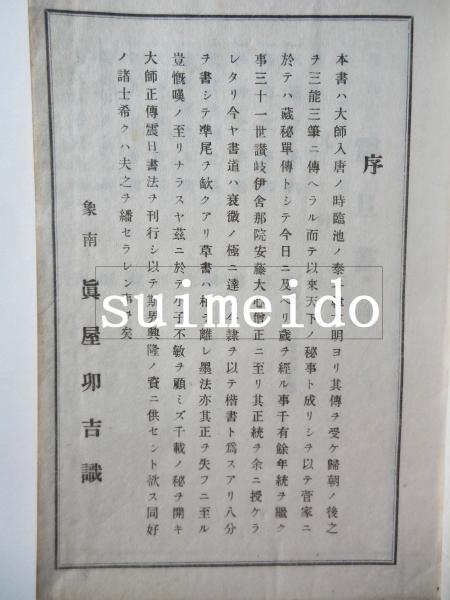 序
本書ハ大師入唐ノ時臨池ノ泰 明ヨリ其傳ヲ受ケ歸朝ノ後之
ヲ三能三筆ニ傳ヘラル而テ以來天下ノ秘事ト成リシヲ以テ菅家ニ
於テハ藏秘單傳トシテ今日ニ及ヘリ歲ヲ經ル事千有餘年統ヲ繼ク
事三十一世讃岐伊舍那院安藤大心僧正ニ至リ其正統ヲ余ニ授ケラ
レタリ今ヤ書道ハ衰微ノ極ニ達 隷ヲ以テ楷書ト爲スアリ八分
ヲ書シテ隼尾ヲ缺クアリ草書ハ 離レ墨法亦其正ヲ失フニ至ル
豈慨嘆ノ至リナラスヤ茲ニ於テ小子不敏ヲ顧ミズ千載ノ秘ヲ開キ
大師正傳震旦書法ヲ刊行シ以テ斯界興隆ノ資ニ供セント欲ス同好
ノ諸士希クハ夫之ヲ繙セラレン 矣
象南 眞屋卯吉識
suimeido